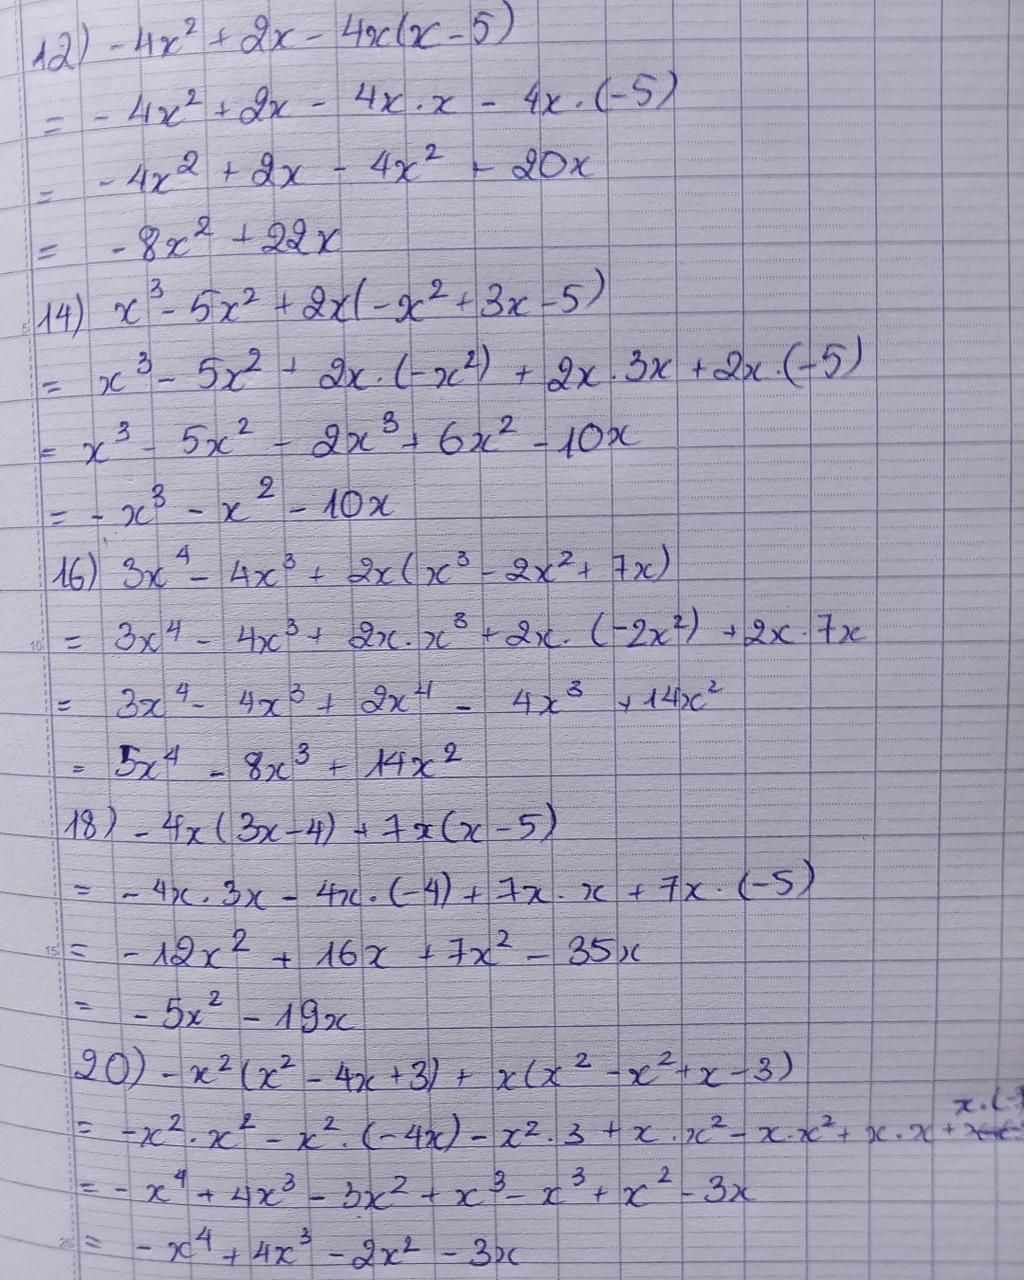 12) -4x² + 2x - 4x(x - 5)
= - 4x² + 2x - 4x . x - 4x . (-5)
= - 4x² + 2x - 4x² + 20x
= - 8x² + 22x
14) x³ - 5x² + 2x(-x² + 3x - 5)
= x³ - 5x² + 2x . (-x²) + 2x . 3x + 2x . (-5)
= x³ - 5x² - 2x³ + 6x² - 10x
= - x³ - x² - 10x
16) 3x⁴ - 4x³ + 2x(x³ - 2x² + 7x)
= 3x⁴ - 4x³ + 2x . x³ + 2x . (-2x²) + 2x . 7x
= 3x⁴ - 4x³ + 2x⁴ - 4x³ + 14x²
= 5x⁴ - 8x³ + 14x²
18) - 4x(3x - 4) + 7x(x - 5)
= - 4x . 3x - 4x . (-4) + 7x . x + 7x . (-5)
= - 12x² + 16x + 7x² - 35x
= - 5x² - 19x
20) - x²(x² - 4x + 3) + x(x² - x² + x - 3)
= -x² . x² - x² . (-4x) - x² . 3 + x . x² - x . x² + x . x + x . (-
= - x⁴ + 4x³ - 3x² + x³ - x³ + x² - 3x
= - x⁴ + 4x³ - 2x² - 3x